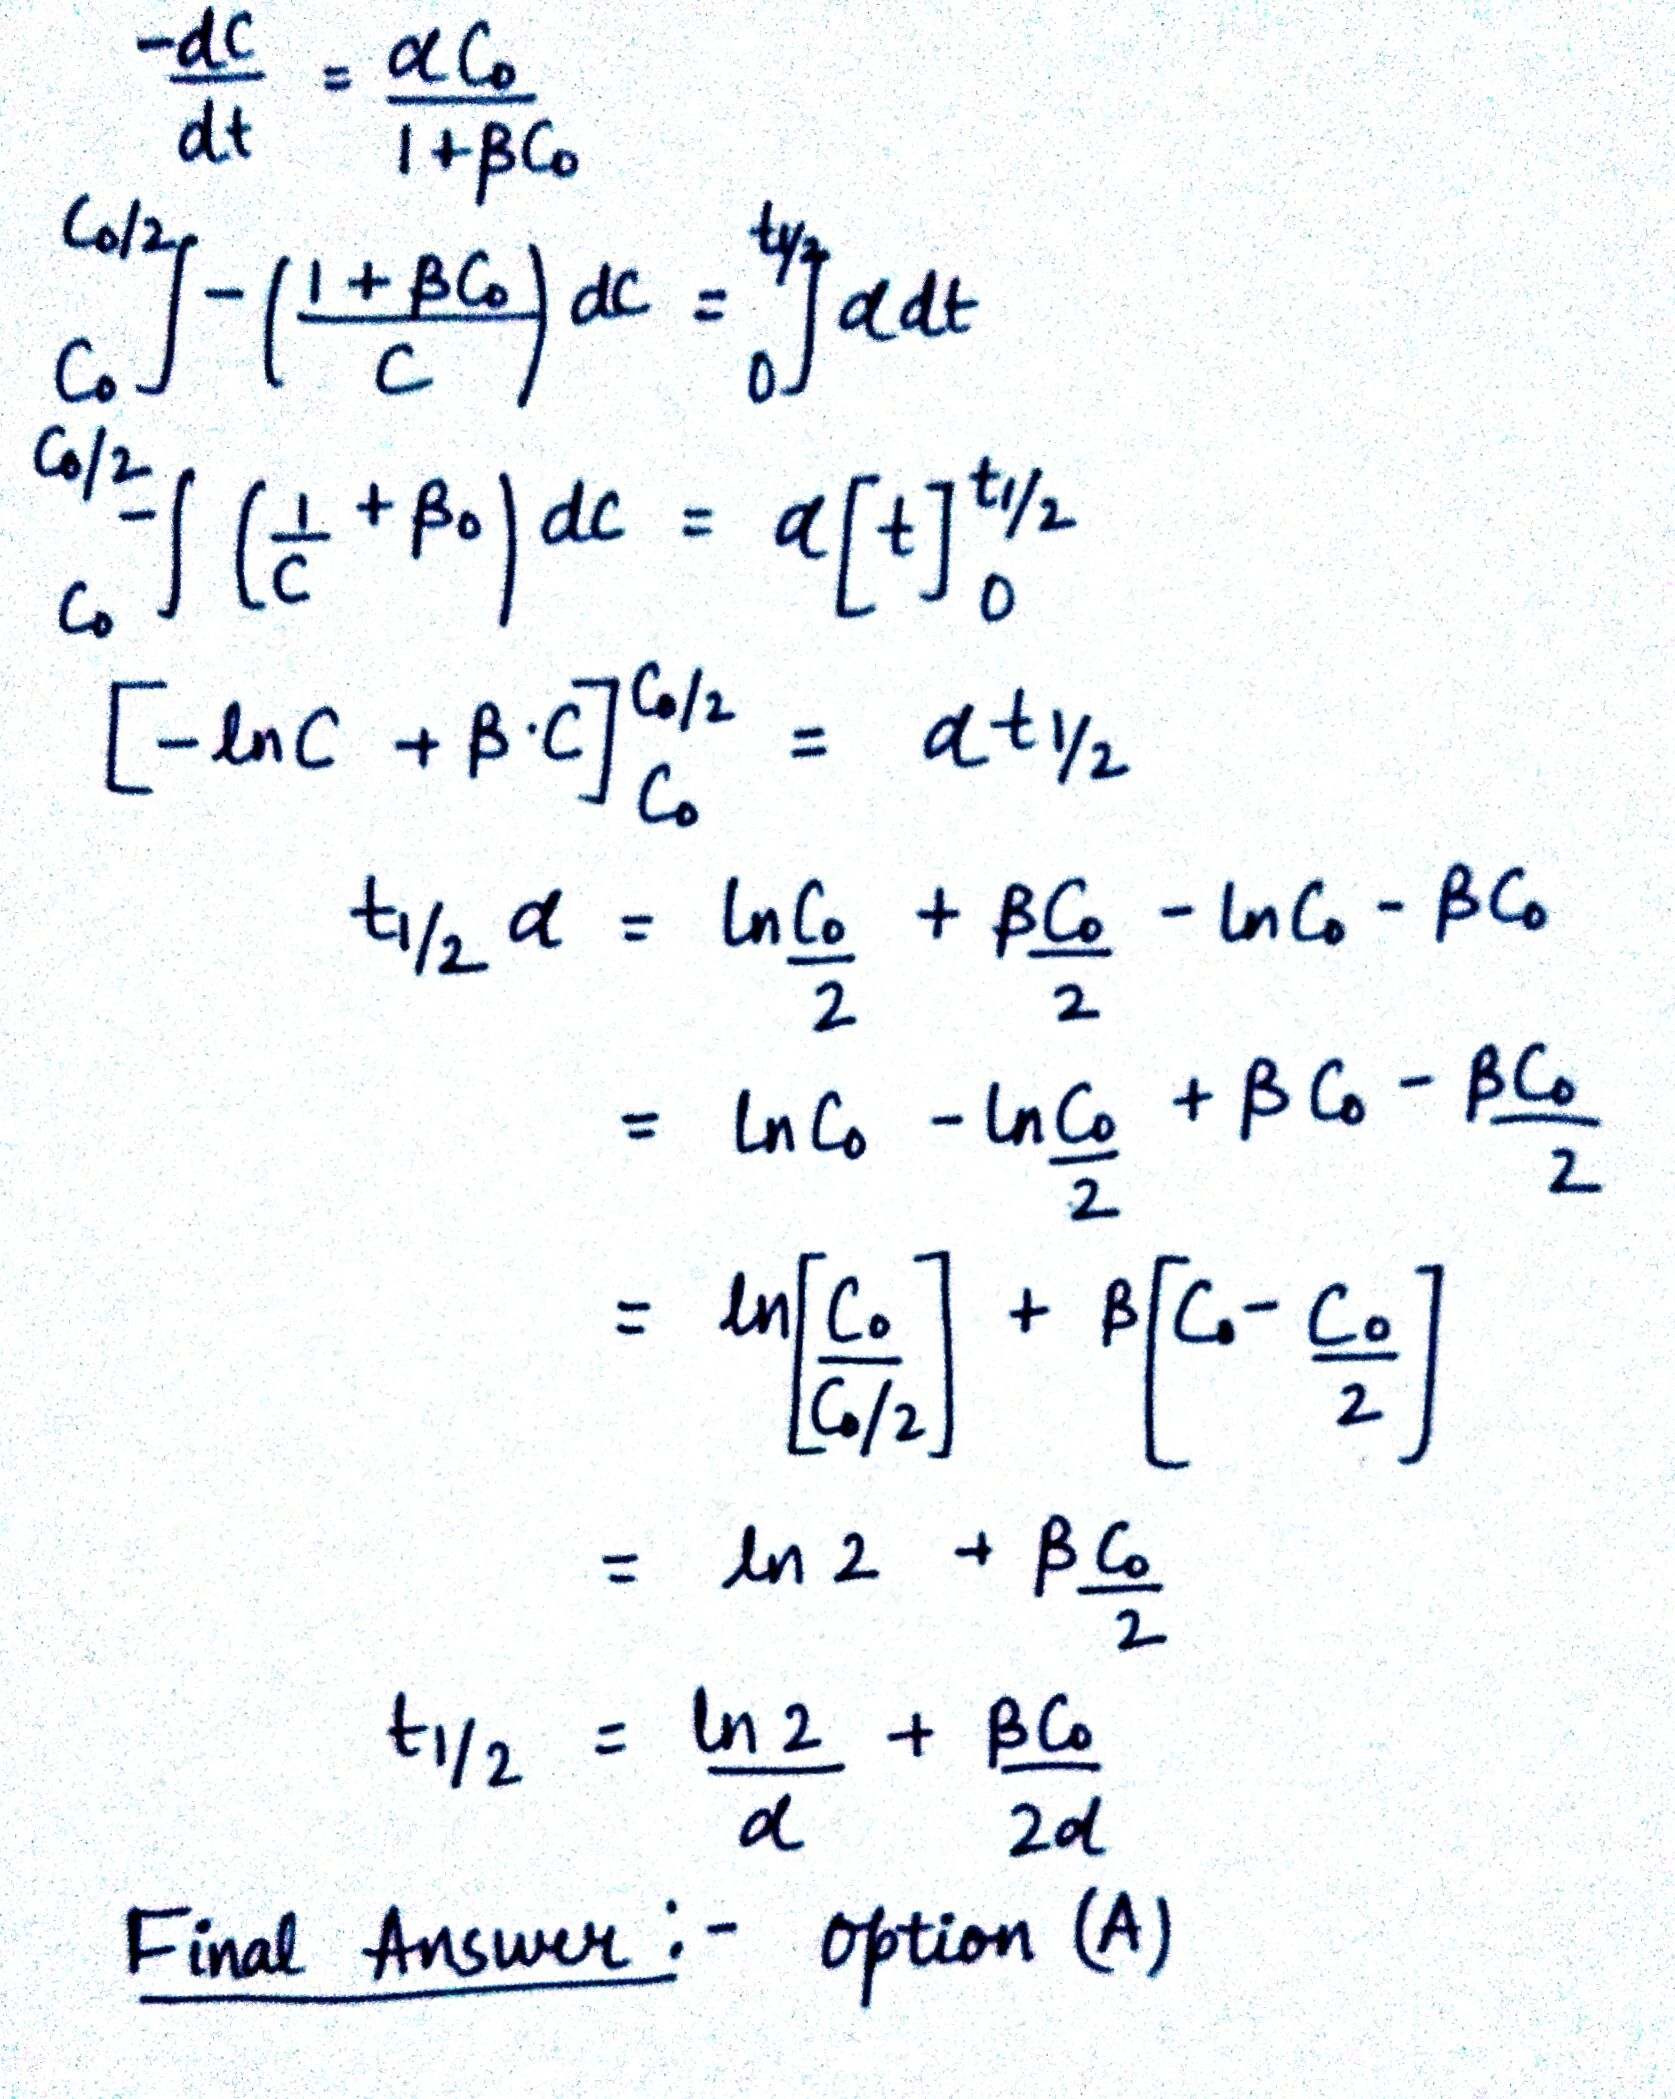 -dC/dt = αC₀/(1+βC₀)
C₀/2 ∫ C₀ -((1+βC₀)/C) dC = t1/2 ∫ 0 α dt
C₀/2 -∫ C₀ (1/C + β₀) dC = α[t] t1/2 0
[-lnC + β·C] C₀/2 C₀ = α t1/2
t1/2 α = ln C₀/2 + βC₀/2 - ln C₀ - βC₀
= ln C₀ - ln C₀/2 + βC₀ - βC₀/2
= ln[C₀/(C₀/2)] + β[C₀ - C₀/2]
= ln 2 + βC₀/2
t1/2 = ln 2/α + βC₀/2α
Final Answer :- option (A)